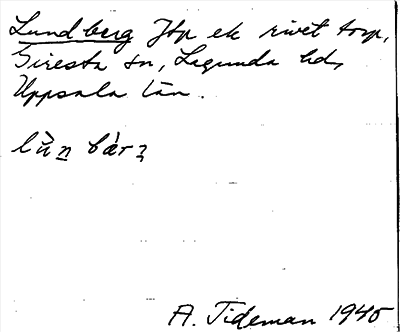 Lundberg Jtp ek rivet torp,
Giresta sn, Lagunda hd,
Uppsala län.
lùn bær̀ʒ
A. Tideman 1945